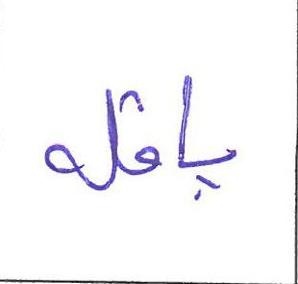 ياقله